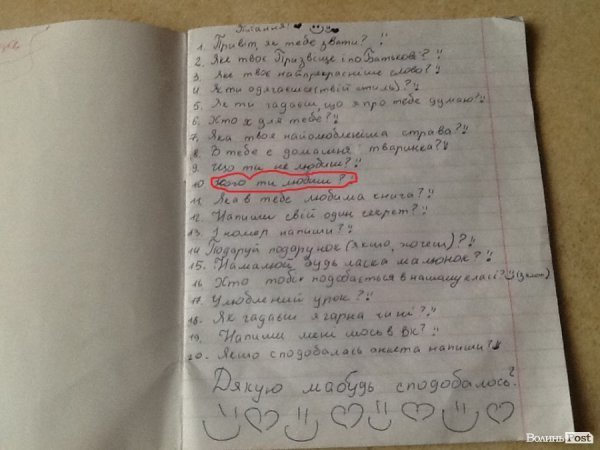 Питання!
1. Привіт, як тебе звати?
2. Яке твоє Прізвище і по Батькові?
3. Яке твоє найпрекрасніше слово?
4. Як ти одягаєшся (твій стиль)?
5. Як ти гадаєш, що я про тебе думаю?
6. Хто я для тебе?
7. Яка твоя найомобленіша страва?
8. В тебе є домашня тваринка?
9. Що ти не любиш?
10. Кого ти любиш?
11. Яка в тебе любима книга?
12. Напиши свій один секрет?
13. І номер напиши?
14. Подаруй подарунок (якшо, хочеш)?
15. Намалюй будь ласка малюнок?
16. Хто тобі подобається в нашому класі?
17. Улюблений урок?
18. Як гадаєш я гарна чи ні?
19. Напиши мені шось в Вк?
20. Якшо сподобалась анкета напиши?
Дякую мабудь сподобалось?
ВолиньPost